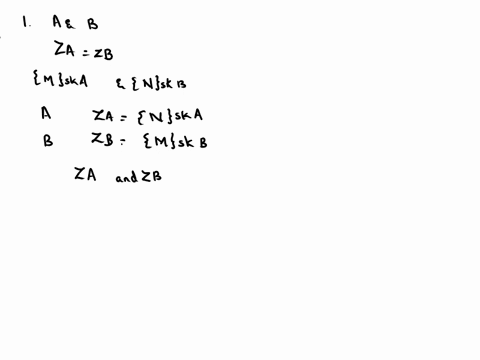 1. A & B
ZA = ZB
{M}skA & {N}skB
A ZA = {N}skA
B ZB = {M}skB
ZA and ZB